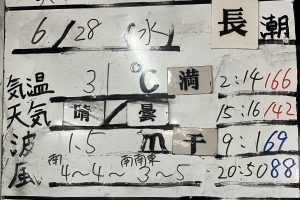 長潮
6/28(水)
気温 31℃ 満 2:14 166
天気 晴/曇 15:16 142
波 1.5m 干 9:1 69
風 南4〜4〜南南東3〜5 20:50 88